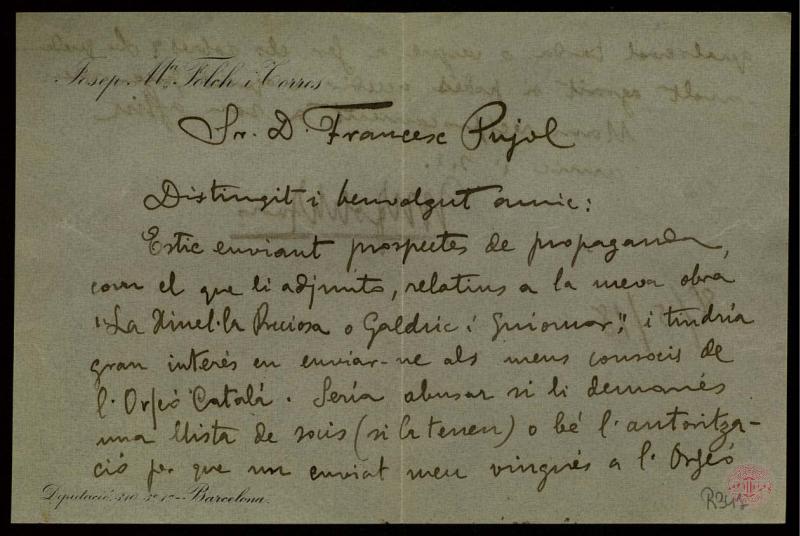 Josep M.ª Folch i Torres
Sr. D. Francesc Pujol
Distingit i benvolgut amic:
Estic enviant prospectes de propaganda,
com el que li adjunto, relatius a la meva obra
"La Xinel·la Preciosa o Galdric i Guiomar," i tindría
gran interés en enviar-ne als meus consocis de
l'Orfeó Catalá. Sería abusar si li demanés
una llista de socis (si la tenen) o bé l'autoritza-
ció per que un enviat meu vingués a l'Orfeó
Deputació, 210, 3er 1ª - Barcelona.
R347